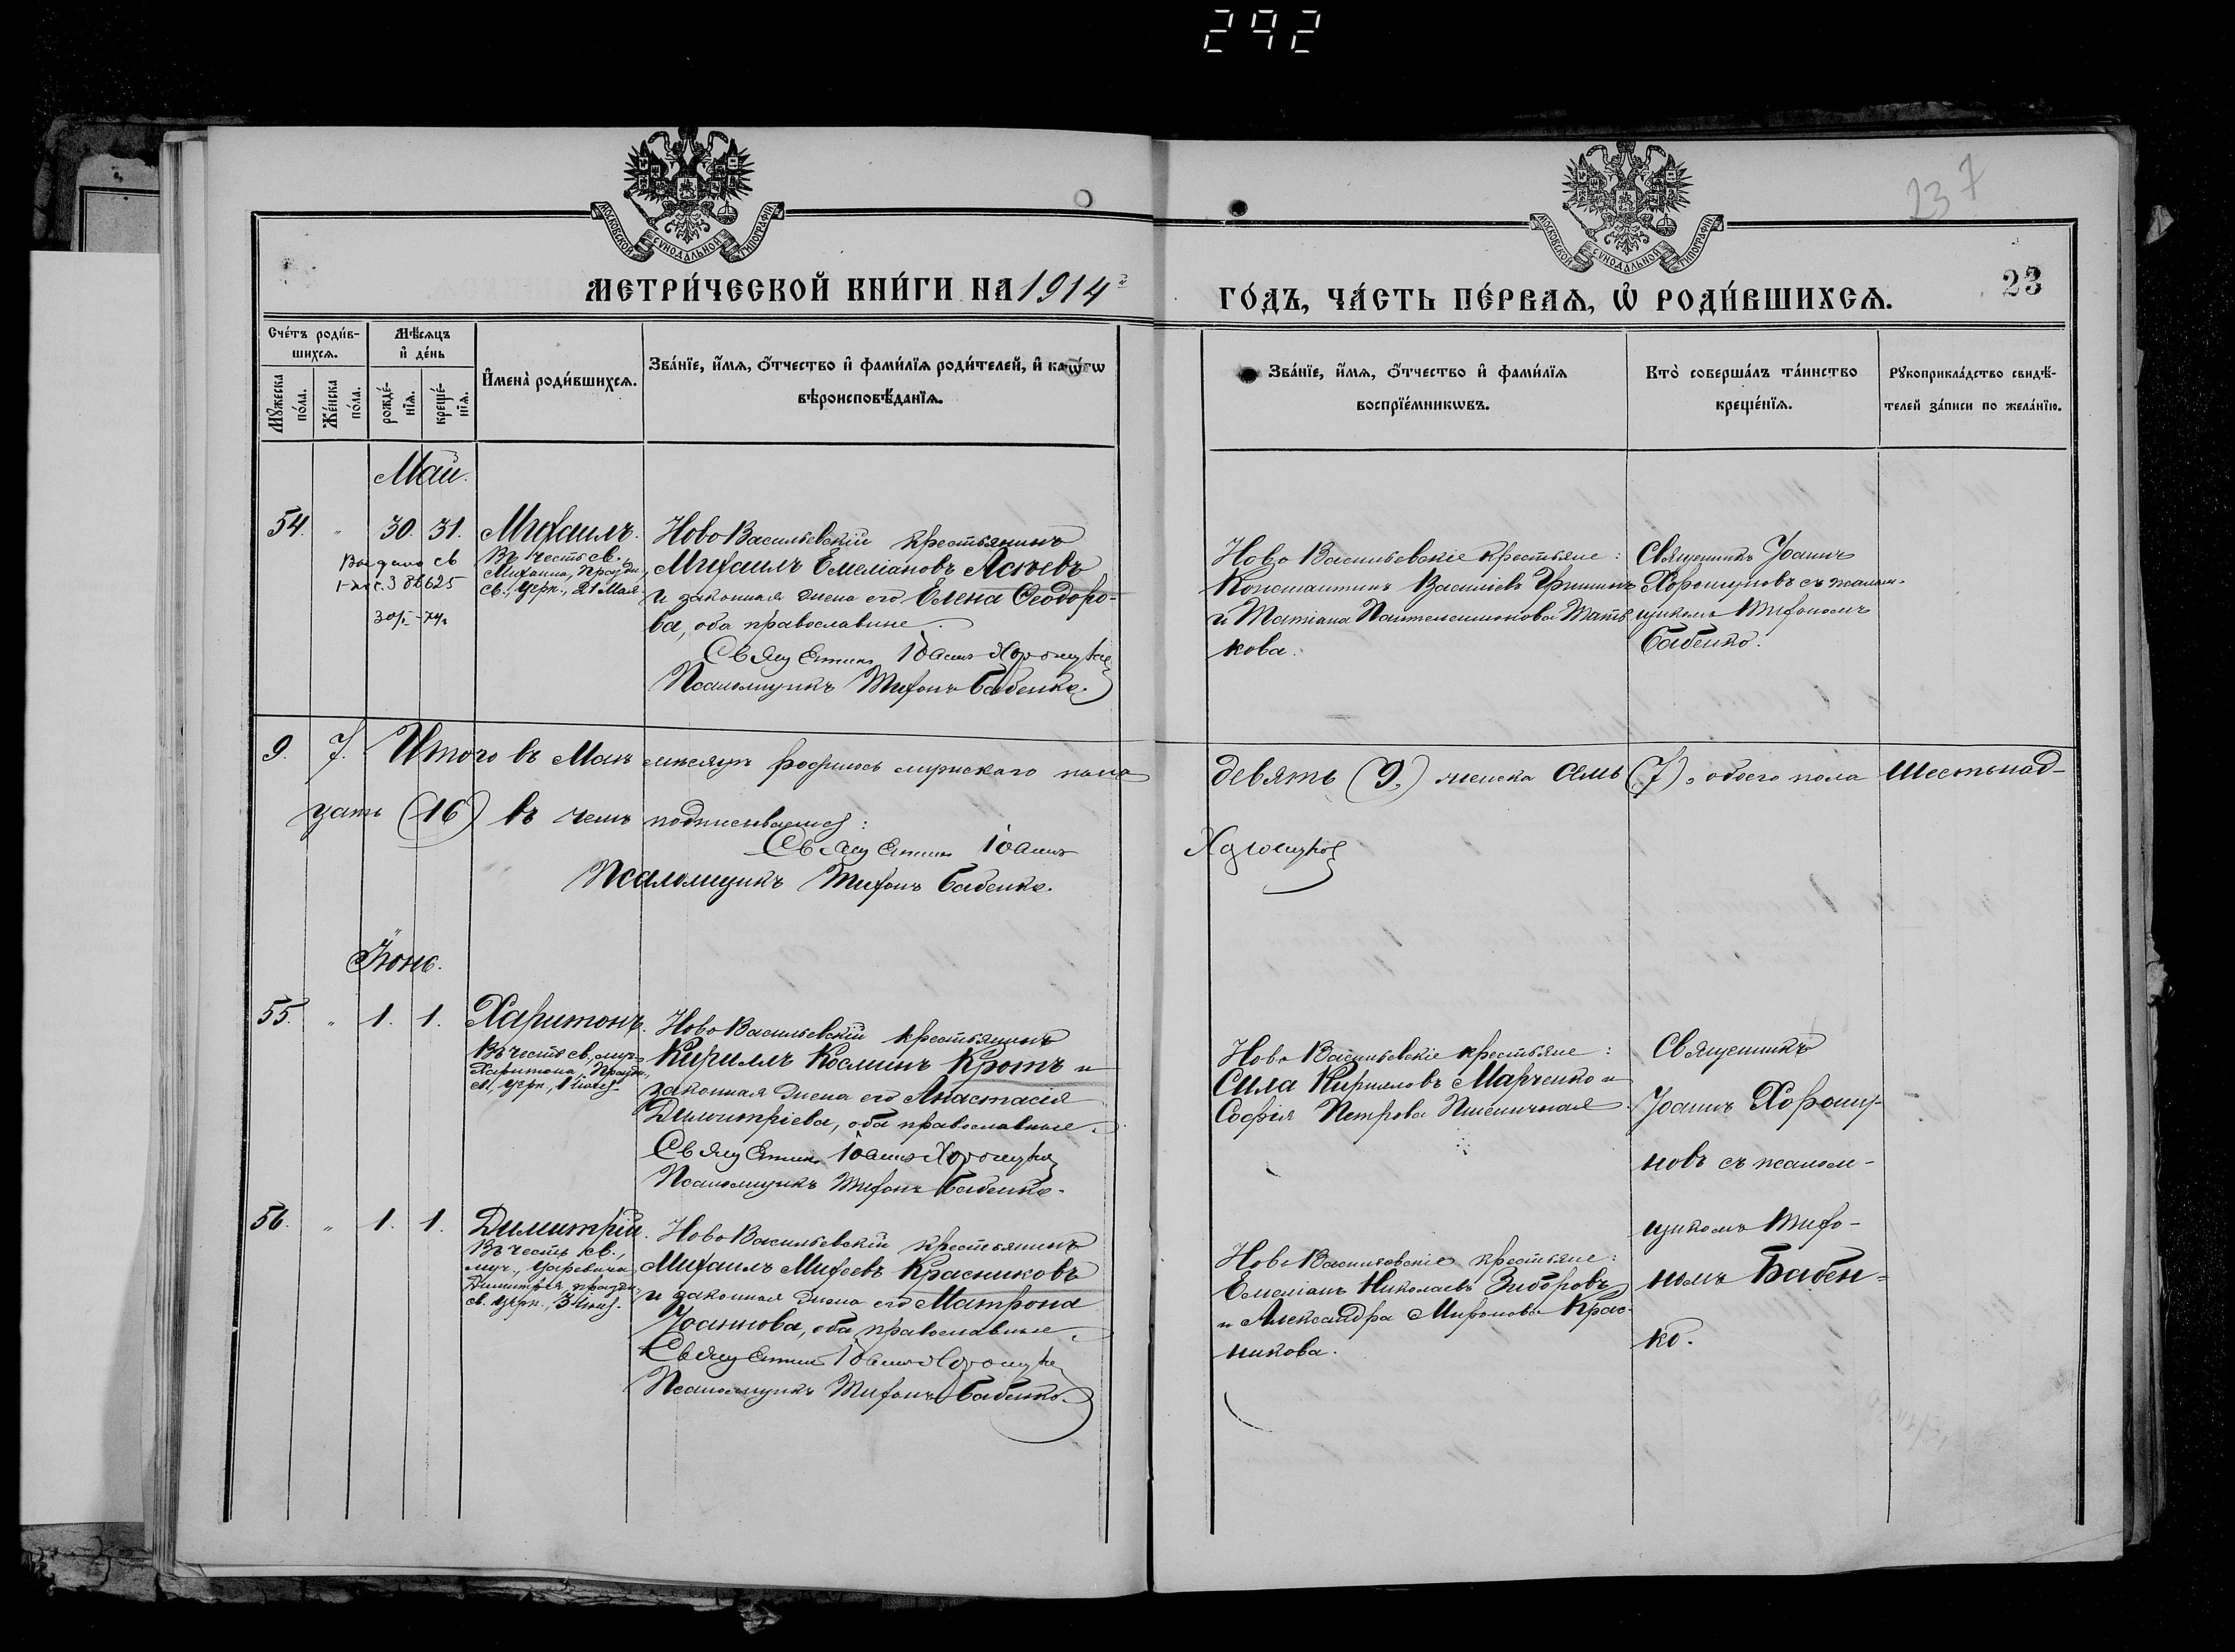 292
МОСКОВСКОЙ СѴНОДАЛЬНОЙ ТИПОГРАФІИ
МОСКОВСКОЙ СѴНОДАЛЬНОЙ ТИПОГРАФІИ
237
23
МЕТРИ́ЧЕСКОЙ КНИ́ГИ НА 1914й
ГО́ДЪ, ЧА́СТЬ ПЕ́РВАѦ, Ѽ РОДИ́ВШИХСѦ.
Сче́тъ роди́в-
шихсѧ.
Мꙋ́жеска
по́ла.
Же́нска
по́ла.
Мѣ́сѧцъ
и҆ де́нь
рожде́-
нїѧ.
креще́-
нїѧ.
И҆мена̀ роди́вшихсѧ.
Зва́нїе, и҆́мѧ, ѻ҆́тчество и҆ фами́лїѧ роди́телей, и҆ како́гѡ
вѣроисповѣ́данїѧ.
Зва́нїе, и҆́мѧ, ѻ҆́тчество и҆ фами́лїѧ
воспрїе́мникѡвъ.
Кто̀ соверша́лъ та́инство
креще́нїѧ.
Рꙋкоприкла́дство свидѣ́-
телей за́писи по жела́нїю.
Май.
54. " 30. 31. Михаилъ.
Выдано св
30/I-74г
Въ честь св.
Михаила, праздн.
св., церк., 21 Мая
НовоВасильевскій крестьянинъ
Михаилъ Емеліановъ Асѣевъ
и законная жена его Елена Ѳеодоро-
ва, оба православные.
Священникъ Іоаннъ Хорошуно
Псаломщикъ Тихонъ Бабенко.
Ново Васильевскіе крестьяне:
Константинъ Василіевъ Гришинъ
и Татіана Пантелеимонова
кова.
Священникъ Іоаннъ
Хорошуновъ съ псалом-
щикомъ Тихономъ
Бабенко.
9. 7. Итого въ Маѣ мѣсяцѣ родилось мужскаго пола девять (9,) женска семь (7), обоего пола шестьнад-
цать (16) въ чемъ подписываемся:
Священникъ Іоаннъ Хорошунов
Псаломщикъ Тихонъ Бабенко.
Іюнь.
55. " 1. 1. Харитонъ.
Въ честь св., муч.
Харитона, праздн.,
св., церк., 1 Іюня
НовоВасильевскій крестьянинъ
Кириллъ Косминъ Кротъ и
законная жена его Анастасія
Димитріева, оба православные.
Священникъ Іоаннъ Хорошуно
Псаломщикъ Тихонъ Бабенко.
Ново Васильевскіе крестьяне:
Сила Кирилловъ Марченко и
Софія Петрова Пшеничная
Священникъ
Іоаннъ Хорошу-
новъ съ псалом-
щикомъ Тихо-
номъ Бабен-
ко.
56. " 1. 1. Димитрій.
Въ честь св.,
муч., Царевича
Димитрія, праздн.
св. церк., 3 Іюня.
НовоВасильевскій крестьянинъ
Михаилъ Михеевъ Красниковъ
и законная жена его Матрона
Іоаннова, оба православные.
Священникъ Іоаннъ Хорошуно
Псаломщикъ Тихонъ Бабенко.
Ново Васильевскіе крестьяне:
Емеліанъ Николаевъ Зиборовъ
и Александра Миронова Крас-
никова.